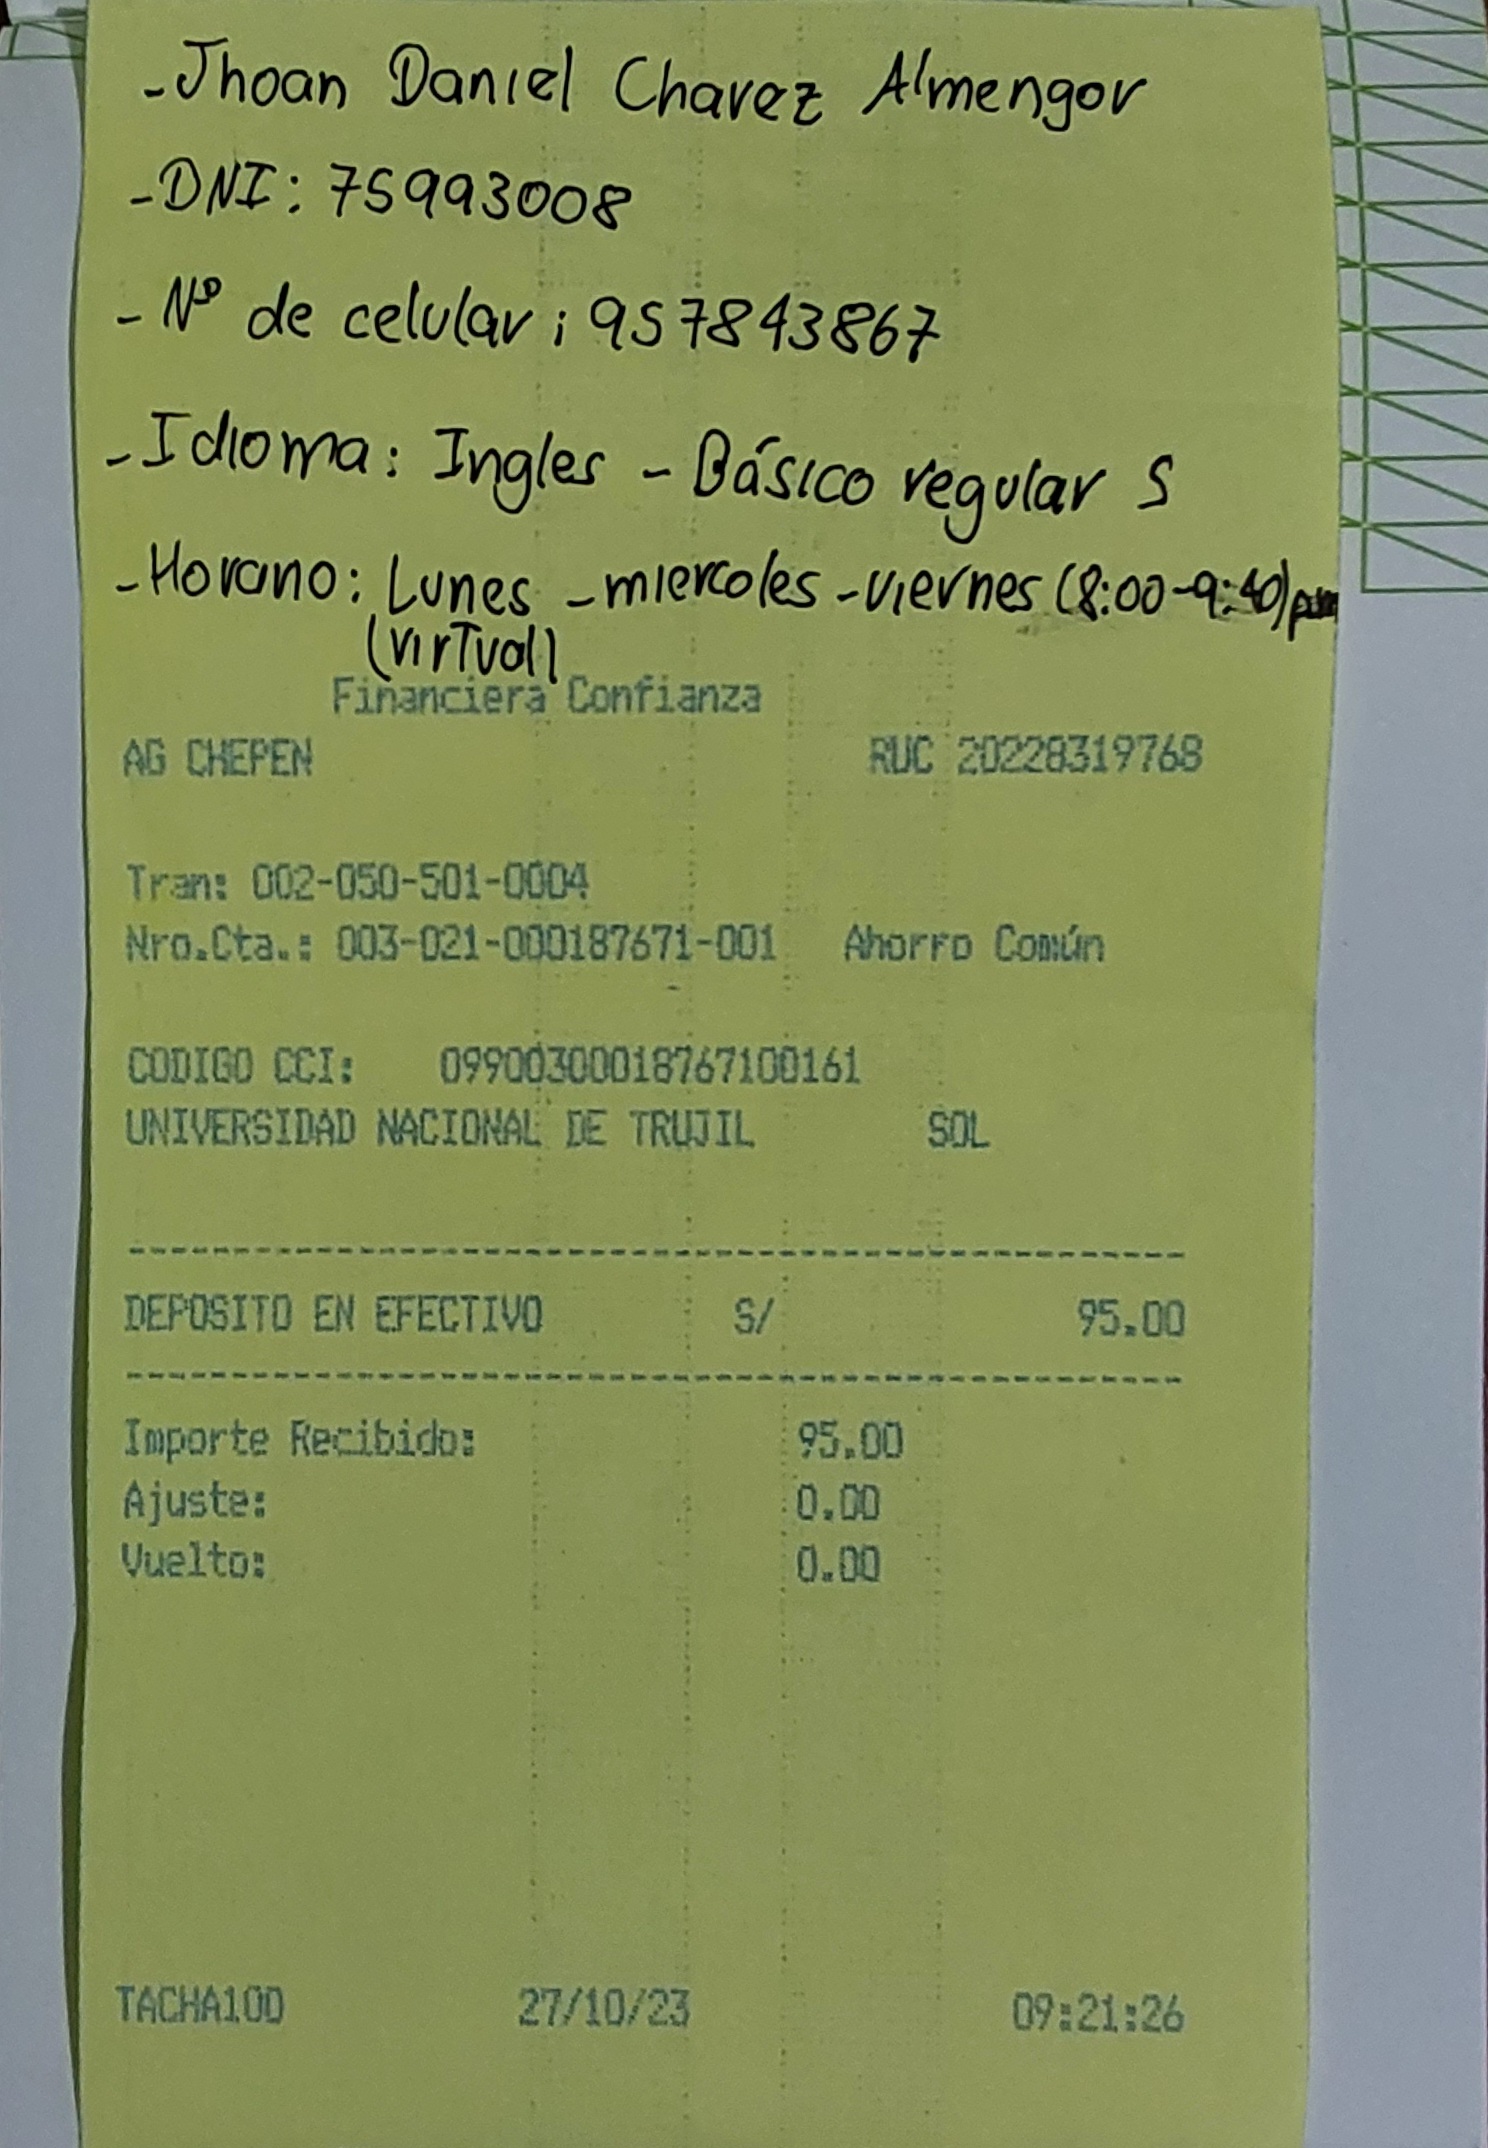 -Jhoan Daniel Chavez Almengor
-DNI: 75993008
-N° de celular: 957843867
-Idioma: Ingles - Básico regular 5
-Horario: Lunes -miercoles -viernes (8:00-9:40)pm
(virtual)
Financiera Confianza
AG CHEPEN RUC 20228319768
Tran: 002-050-501-0004
Nro.Cta.: 003-021-000187671-001 Ahorro Común
CODIGO CCI: 09900300018767100161
UNIVERSIDAD NACIONAL DE TRUJIL SOL
DEPOSITO EN EFECTIVO S/ 95.00
Importe Recibido: 95.00
Ajuste: 0.00
Vuelto: 0.00
TACHA100 27/10/23 09:21:26